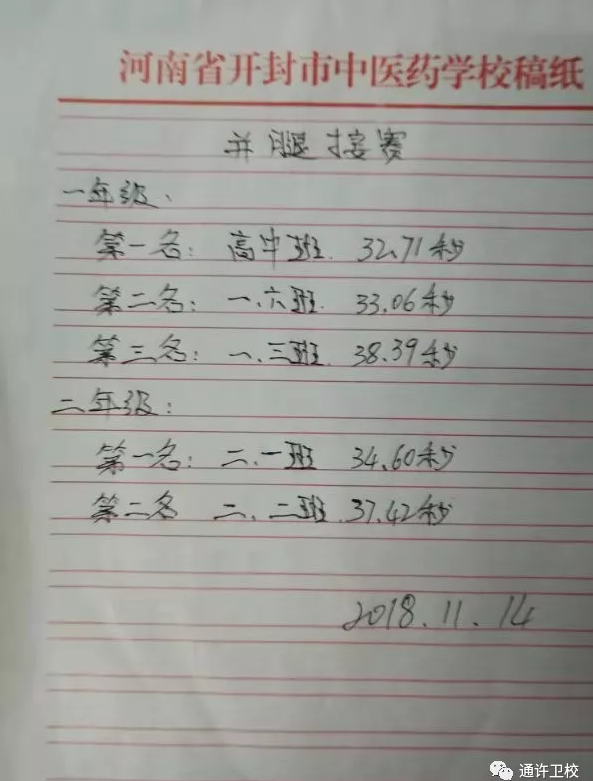 河南省开封市中医药学校稿纸
并腿接赛
一年级、
第一名：高中班. 32.71秒
第二名：一.六班. 33.06秒
第三名：一.三班. 38.39秒
二年级：
第一名：二.一班 34.60秒
第二名 二、二班.37.42秒
2018.11.14
通许卫校